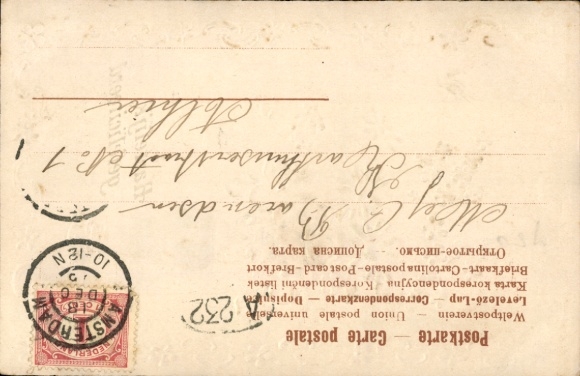 Postkarte — Carte postale
Weltpostverein — Union postale universelle
Levelező-Lap — Correspondenzkarte — Dopisnice
Karta korespondencyjna Korespondenční lístek
Briefkaart — Cartolina postale — Post card — Brefkort
Открытое-письмо. — Дописна карта.
A 232
AMSTERDAM
18 DEC
10-12 N
NEDERLAND
Mej C Barendsen
No 1